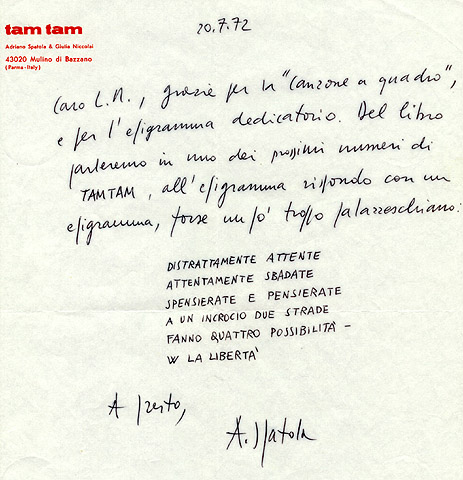 tam tam
Adriano Spatola & Giulia Niccolai
43020 Mulino di Bazzano
(Parma-Italy)
20.7.72
Caro L.N., grazie per la "Canzone a quadro",
e per l'epigramma dedicatorio. Del libro
parleremo in uno dei prossimi numeri di
TAMTAM, all'epigramma rispondo con un
epigramma, forse un po' troppo palazzeschiano:
DISTRATTAMENTE ATTENTE
ATTENTAMENTE SBADATE
SPENSIERATE E PENSIERATE
A UN INCROCIO DUE STRADE
FANNO QUATTRO POSSIBILITÀ –
W LA LIBERTÀ
A presto,
A. Spatola